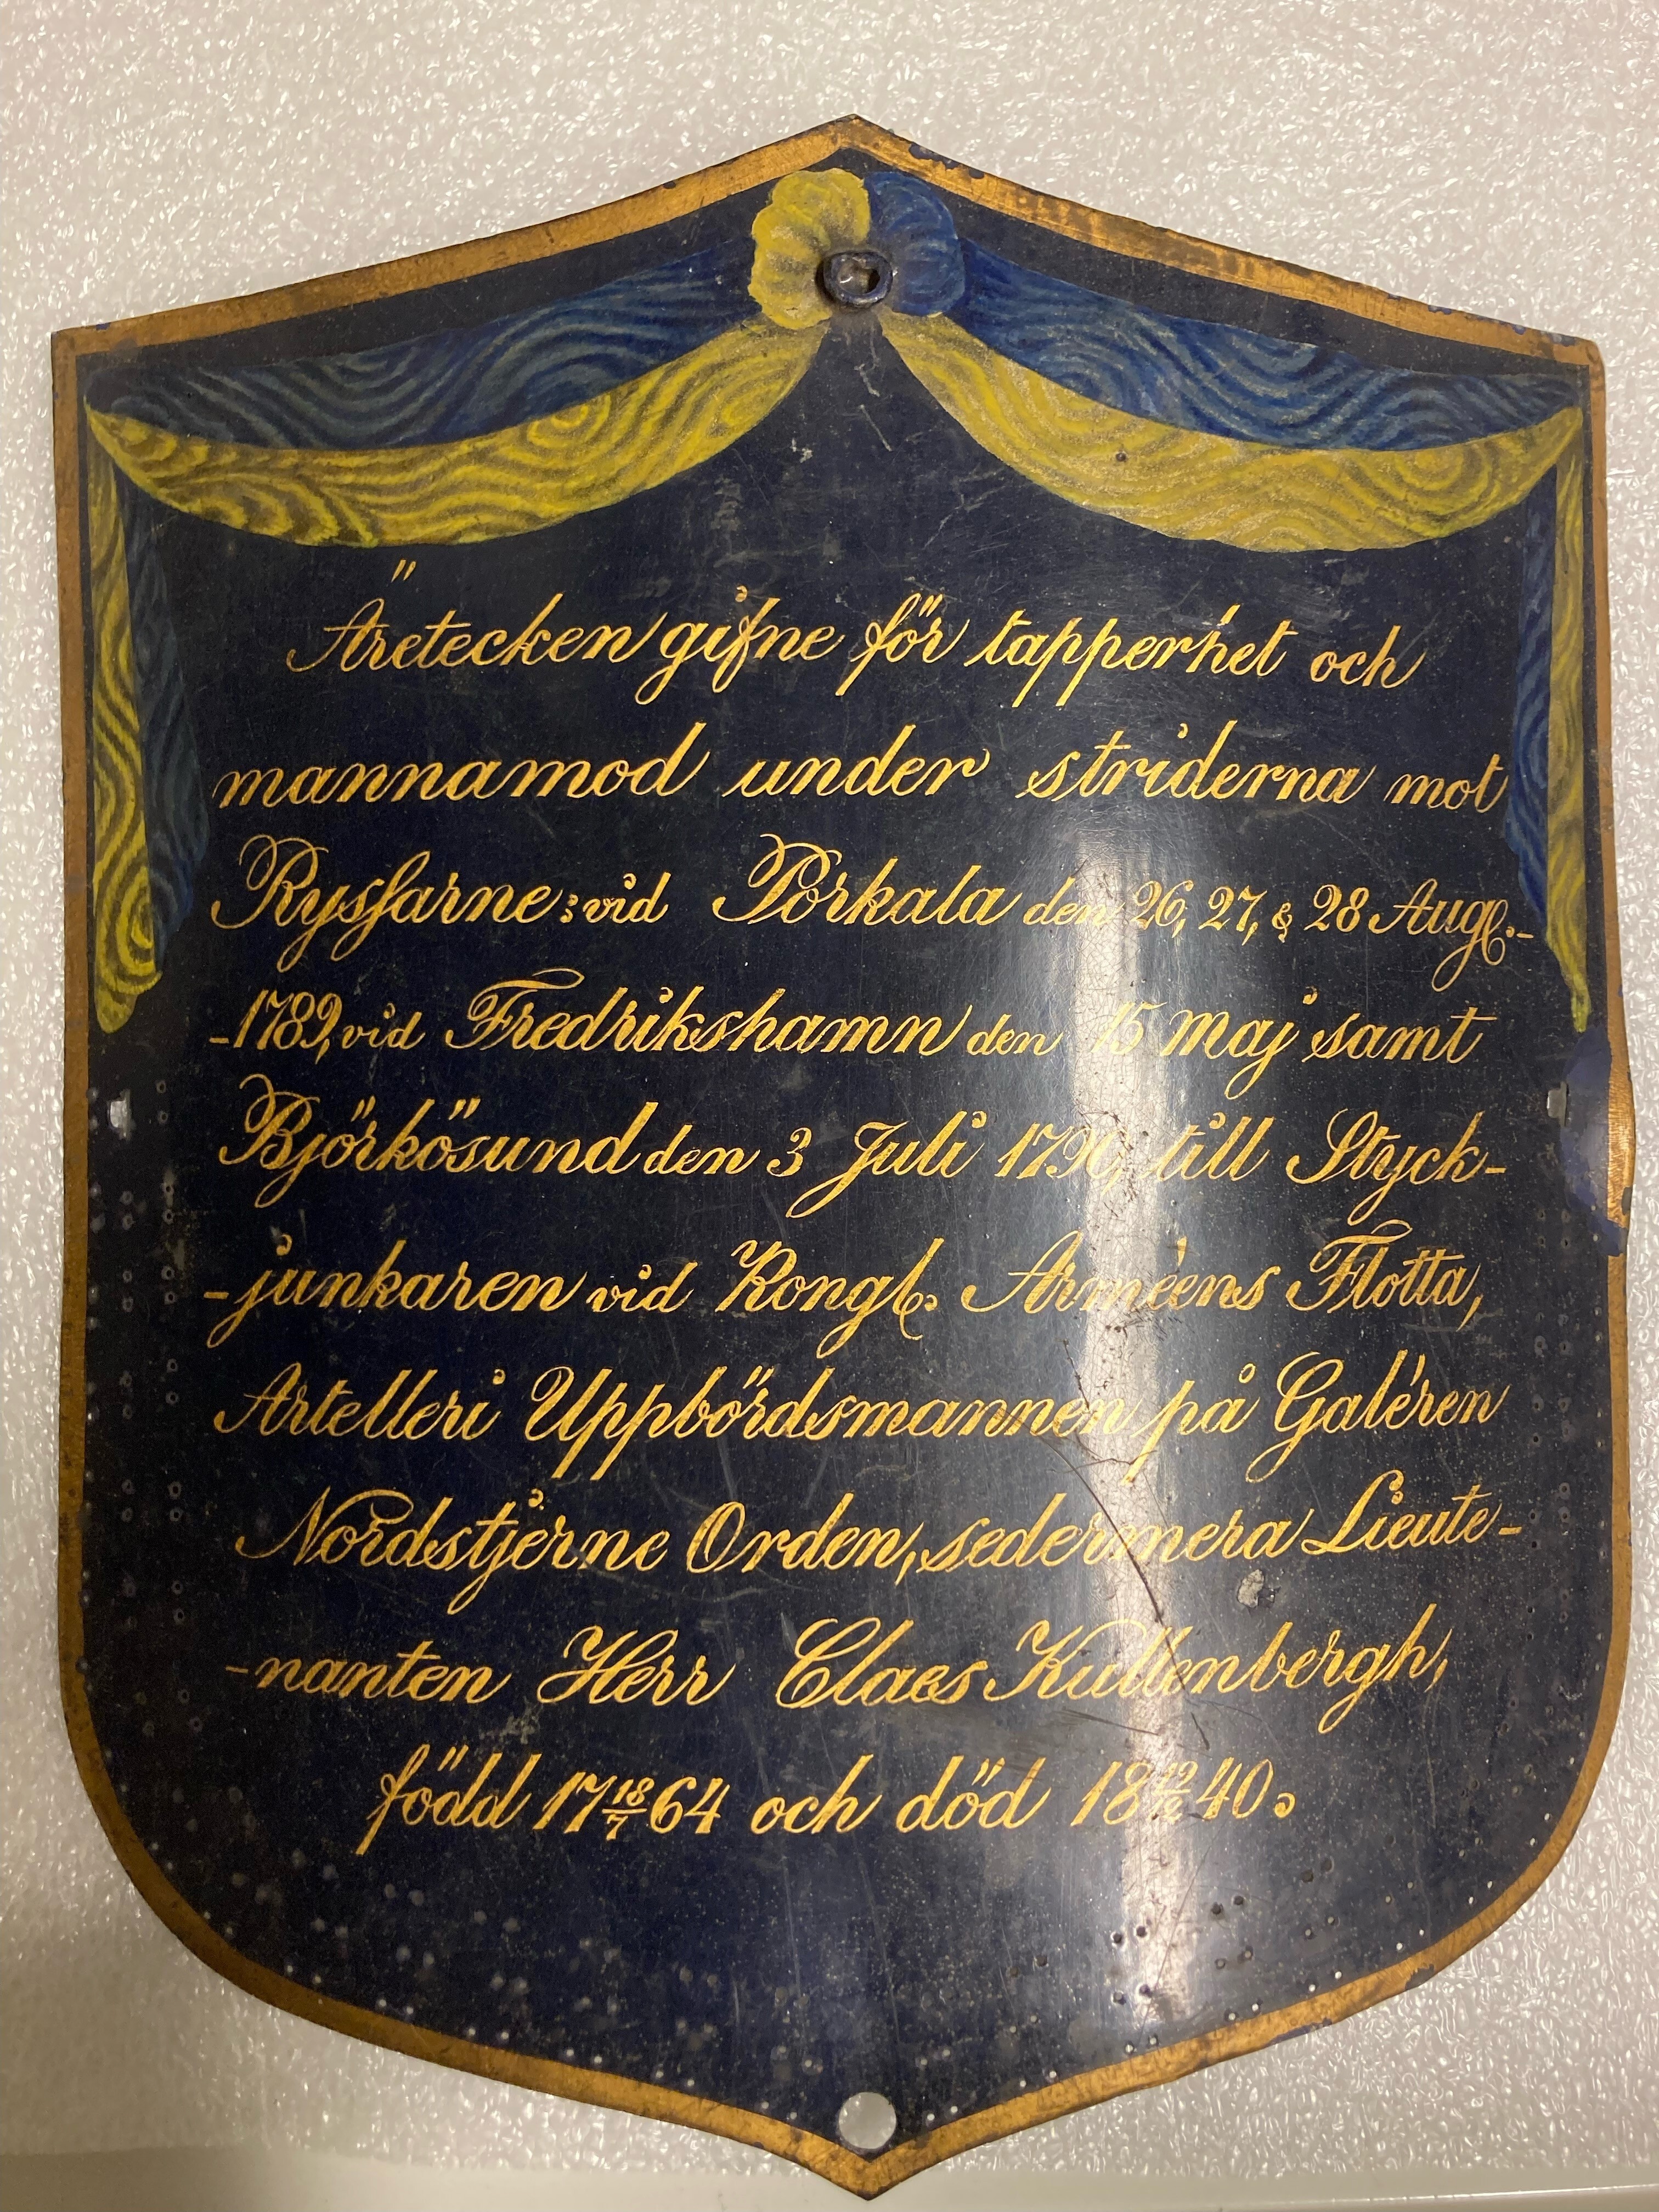 Äretecken gifne för tapperhet och
mannamod under striderna mot
Rysſarne: vid Porkala den 26, 27, & 28 Aug.-
-1789, vid Fredrikshamn den 15 maj samt
Björkösund den 3 Juli 1790, till Styck-
-junkaren vid Kongl. Arméens Flotta,
Artelleri Uppbördsmannen på Galéren
Nordstjerne Orden, sedermera Lieute-
-nanten Herr Claes Kullenbergh,
född 17 18/7 64 och död 18 40.